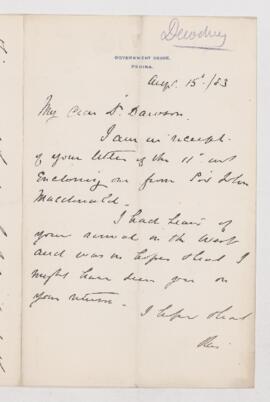 Dewdney
GOVERNMENT HOUSE,
REGINA.
Augt. 15th/83
My dear Dr Dawson.
I am in receipt
of your letter of the 11th inst
Enclosing one from Sir John
Macdonald.
I had heard of
your arrival in the West
and was in hopes that I
might have seen you on
your return.
I hope that
this